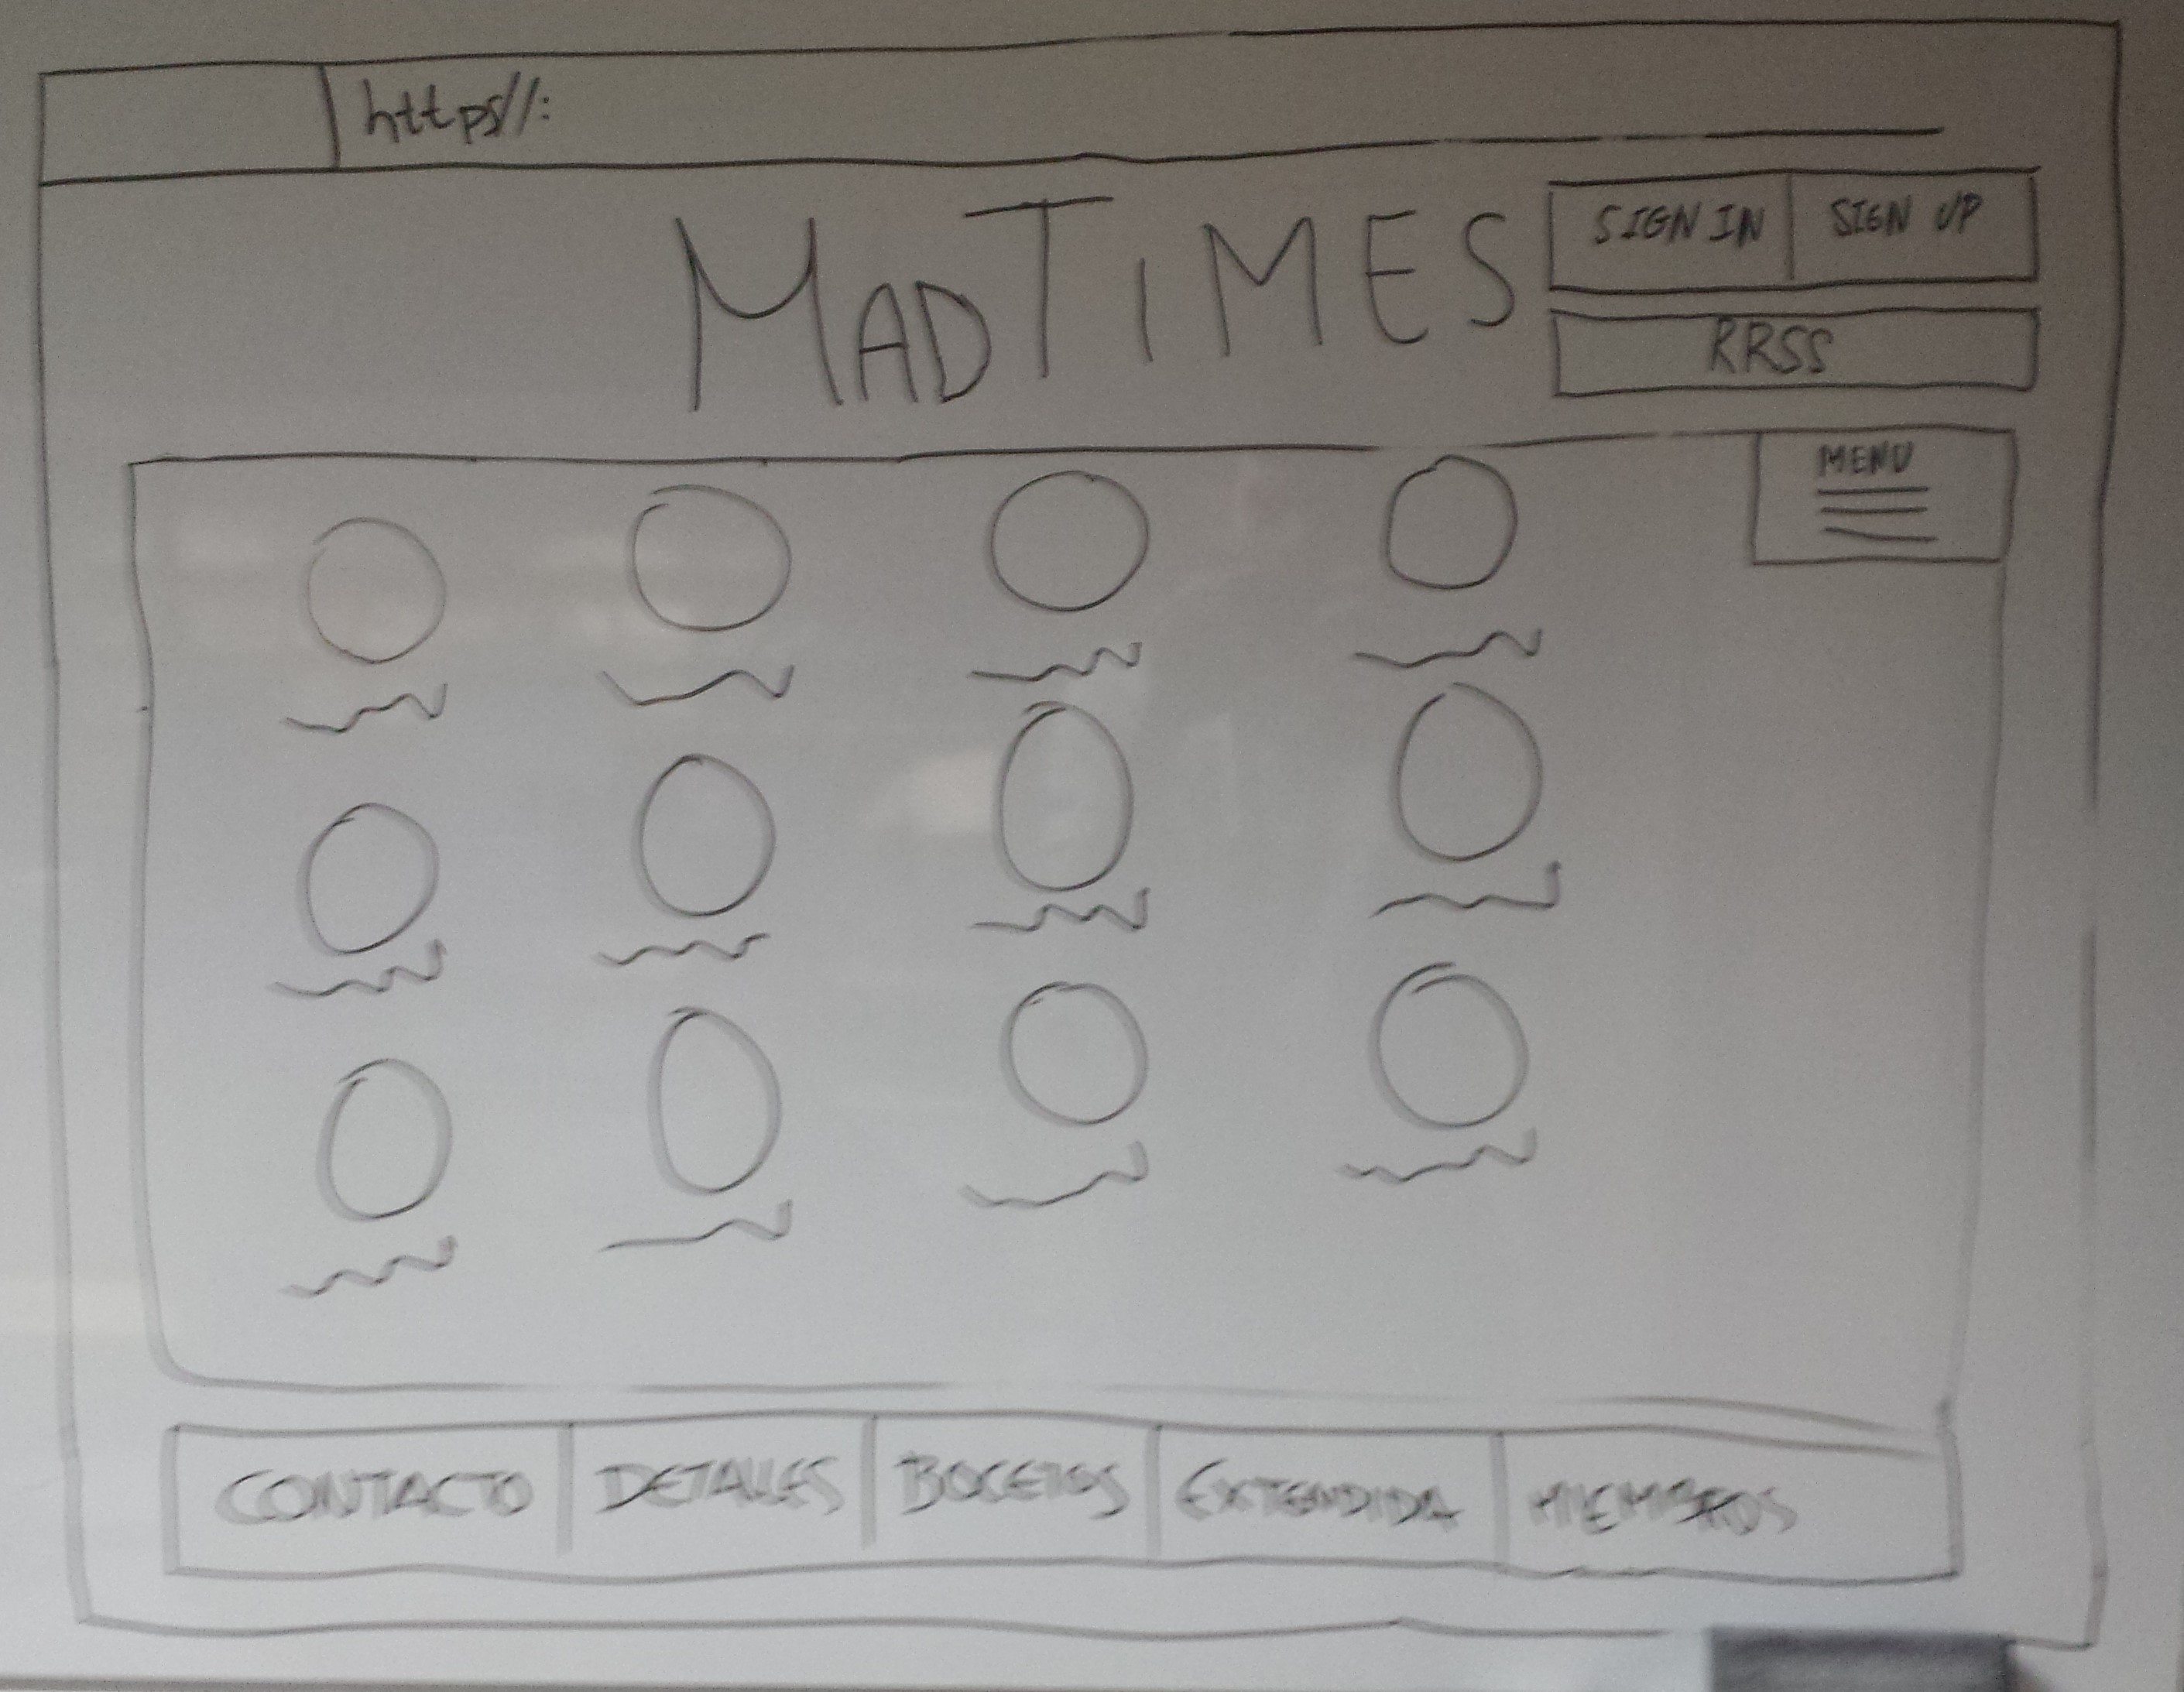 https//:
MADTiMES
SIGN IN SIGN UP
RRSS
MENU
CONTACTO DETALLES BOCETOS EXTENDIDA MIEMBROS